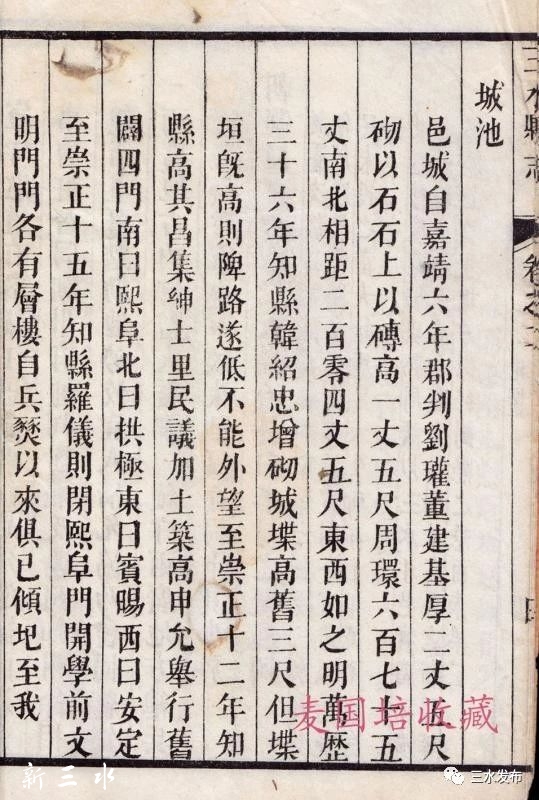 三水縣志
卷之二
城池
邑城自嘉靖六年郡判劉瓘董建基厚二丈五尺
砌以石石上以磚高一丈五尺周環六百七十五
丈南北相距二百零四丈五尺東西如之明萬歷
三十六年知縣韓紹忠增砌城堞高舊三尺但堞
垣既高則陴路遂低不能外望至崇正十二年知
縣高其昌集紳士里民議加土築高申允舉行舊
闢四門南曰熙阜北曰拱極東曰賓暘西曰安定
至崇正十五年知縣羅儀則閉熙阜門開學前文
明門門各有層樓自兵燹以來俱已傾圮至我
麦国培收藏
新三水
三水发布